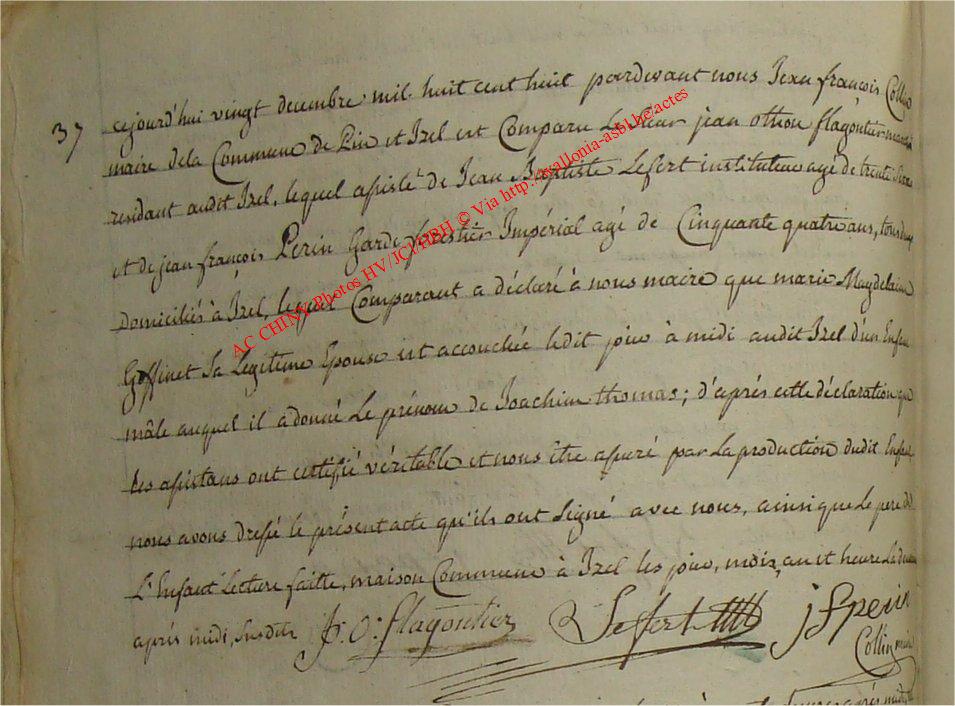 37 cejourd'hui vingt decembre mil huit cent huit pardevant nous Jean françois Collin
maire de la Commune de Pin et Izel est Comparu Le Sieur jean othon flagontier
residant audit Izel, lequel assisté de Jean Baptiste Lefert instituteur agé de trente
et de jean françois Perin Garde forestier Impérial agé de Cinquante quatre ans, tous deux
domiciliés à Izel, lequel Comparant a déclaré à nous maire que marie Magdelaine
Goffinet Sa Legitime Epouse est accouchée ledit jour à midi audit Izel d'un Enfant
mâle auquel il a donné Le prénom de Joachim thomas; d'après cette déclaration que
les assistans ont certifié véritable et nous être assuré par La production dudit Enfant
nous avons dressé le présent acte qu'ils ont Signé avec nous, ainsi que Le pere de
L'Enfant Lecture faitte, maison Commune à Izel les jour, mois, an et heure
après midi, susdits J. O. flagontier Lefert J f perin
Collin maire
AC CHINY Photos HV/JCV/HBH © Via http://wallonia-asbl.be/actes